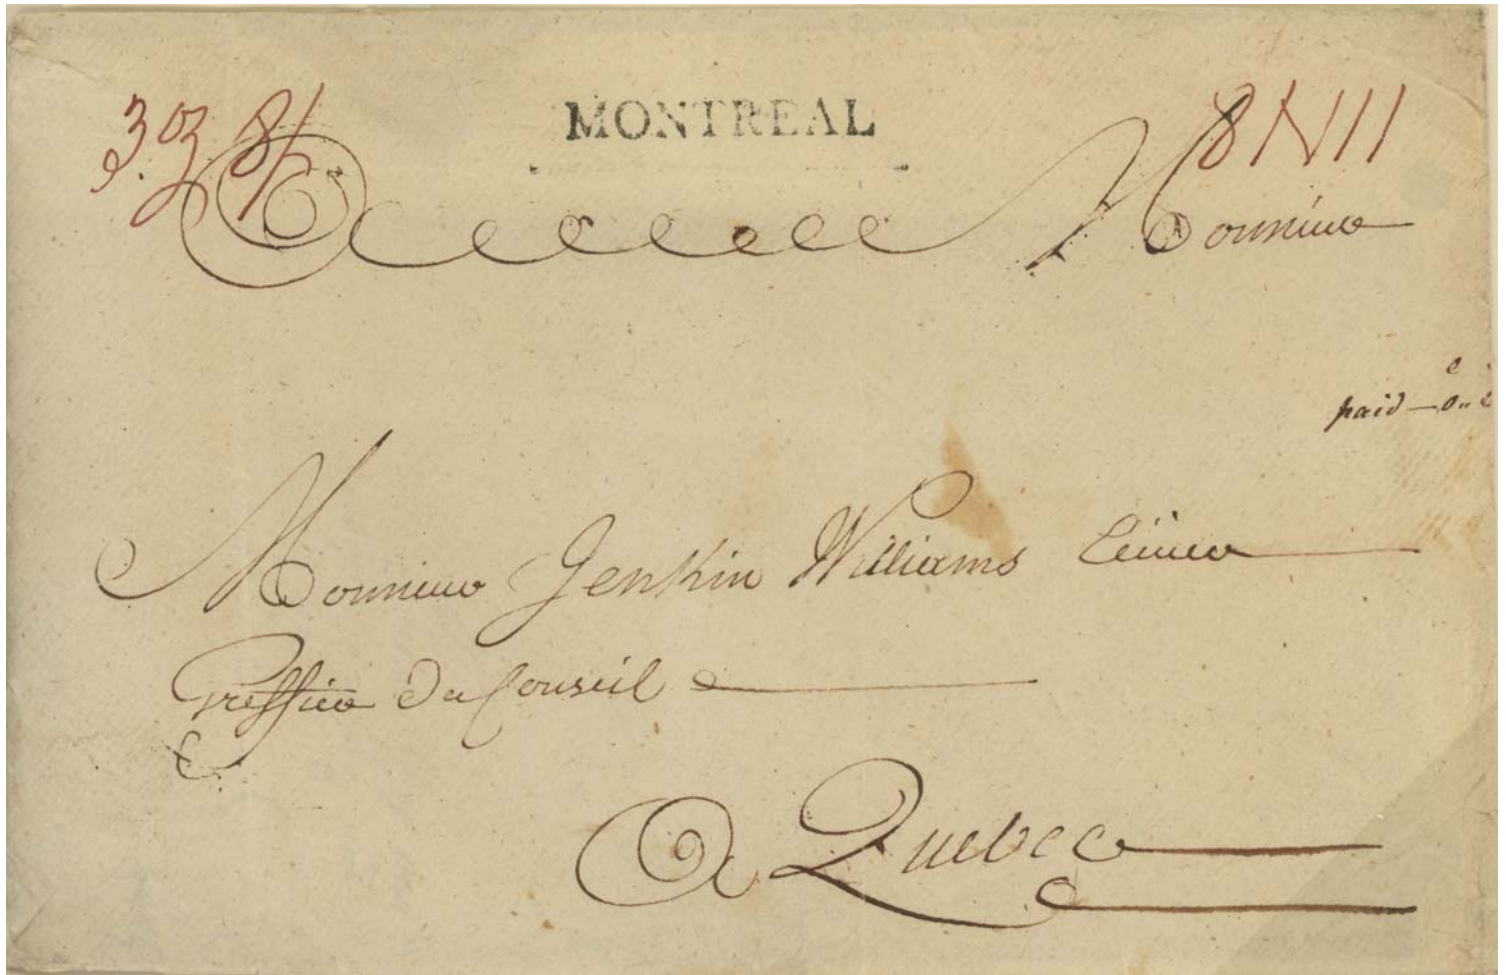 3 oz 8/
MONTREAL
8 N 11
A Monsieur
paid
Monsieur Jenkin Williams
Greffier Du Conseil
A Quebec